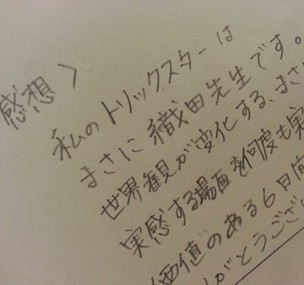 感想〉
私のトリックスターは
まさに織田先生です。
世界観が変化する、まさ
実感する場面を何度も実
価値のある6日間
がとうござ